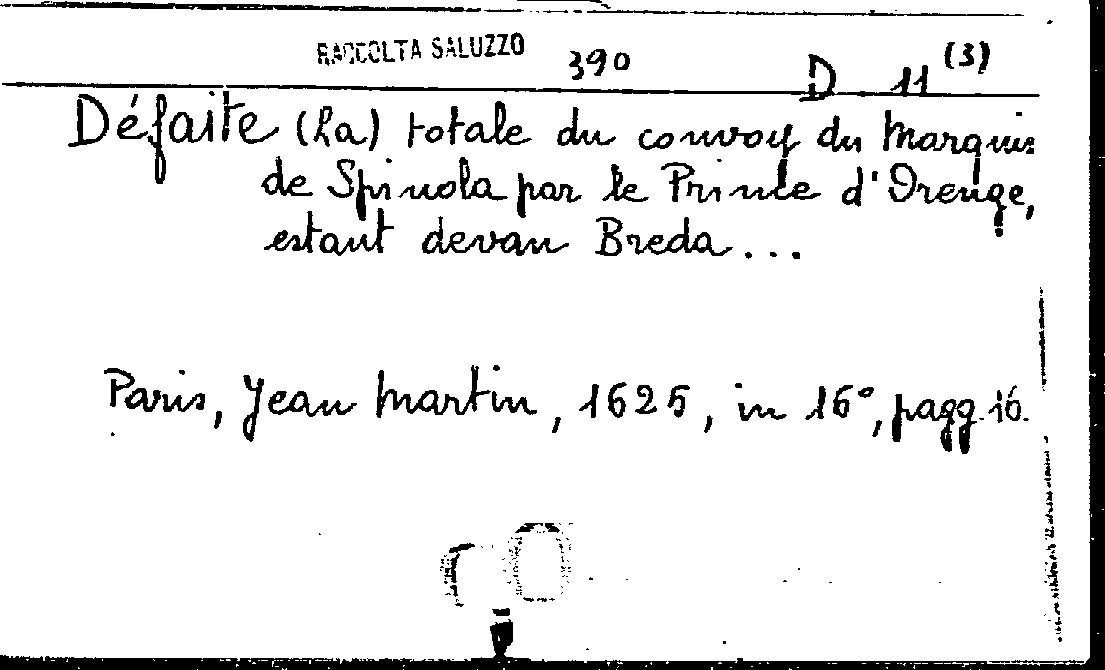 RACCOLTA SALUZZO 390 D 11 (3)
Défaite (La) totale du convoy du Marquis
de Spinola par le Prince d'Orenge,
estant devan Breda...
Paris, Jean Martin, 1625, in 16°, pagg. 16.